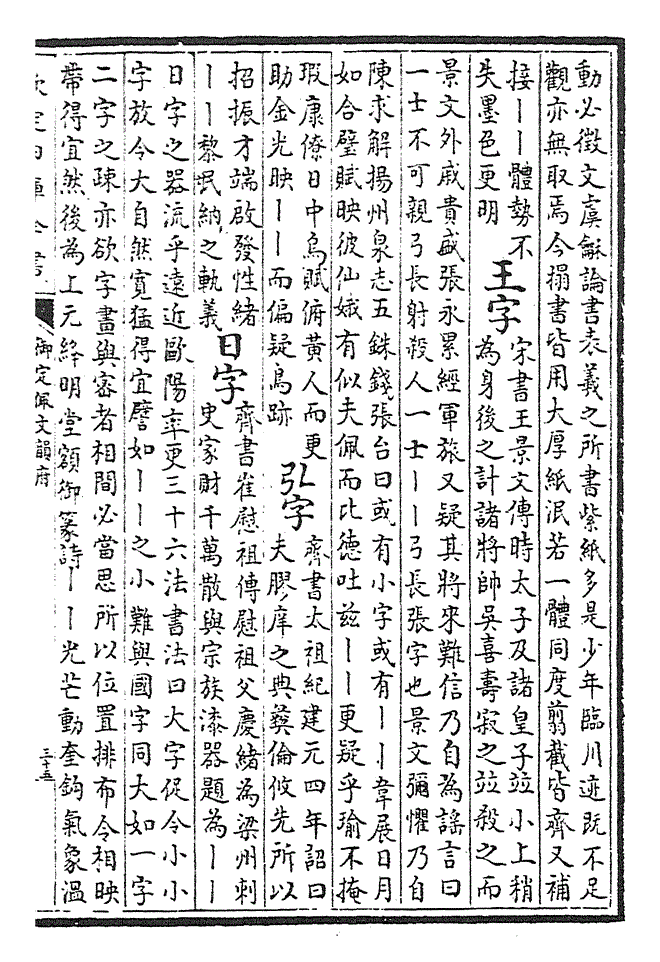 動必徵文虞龢論書表羲之所書紫紙多是少年臨川迹既不足
觀亦無取焉今搨書皆用大厚紙泯若一體同度翦截皆齊又補
接丨丨體勢不
失墨色更明
王字
宋書王景文傳時太子及諸皇子竝小上稍
為身後之計諸將帥吳喜壽寂之竝殺之而
景文外戚貴盛張永累經軍旅又疑其將來難信乃自為謠言曰
一士不可親弓長射殺人一士丨丨弓長張字也景文彌懼乃自
陳求解揚州泉志五銖錢張台曰或有小字或有丨丨韋展日月
如合璧賦映彼仙娥有似夫佩而比德吐茲丨丨更疑乎瑜不掩
瑕康僚日中烏賦俯黃人而更
助金光映丨丨而偏疑鳥跡
弘字
齊書太祖紀建元四年詔曰
夫膠庠之典彝倫攸先所以
招振才端啟發性緒
丨丨黎氓納之軌義
日字
齊書崔慰祖傳慰祖父慶緒為梁州刺
史家財千萬散與宗族漆器題為丨丨
日字之器流乎遠近歐陽率更三十六法書法曰大字促令小小
字放令大自然寬猛得宜譬如丨丨之小難與國字同大如一字
二字之疎亦欲字畫與密者相間必當思所以位置排布令相映
帶得宜然後為上元絳明堂額御篆詩丨丨光芒動奎鈎氣象溫
欽定四庫全書
御定佩文韻府
三十五